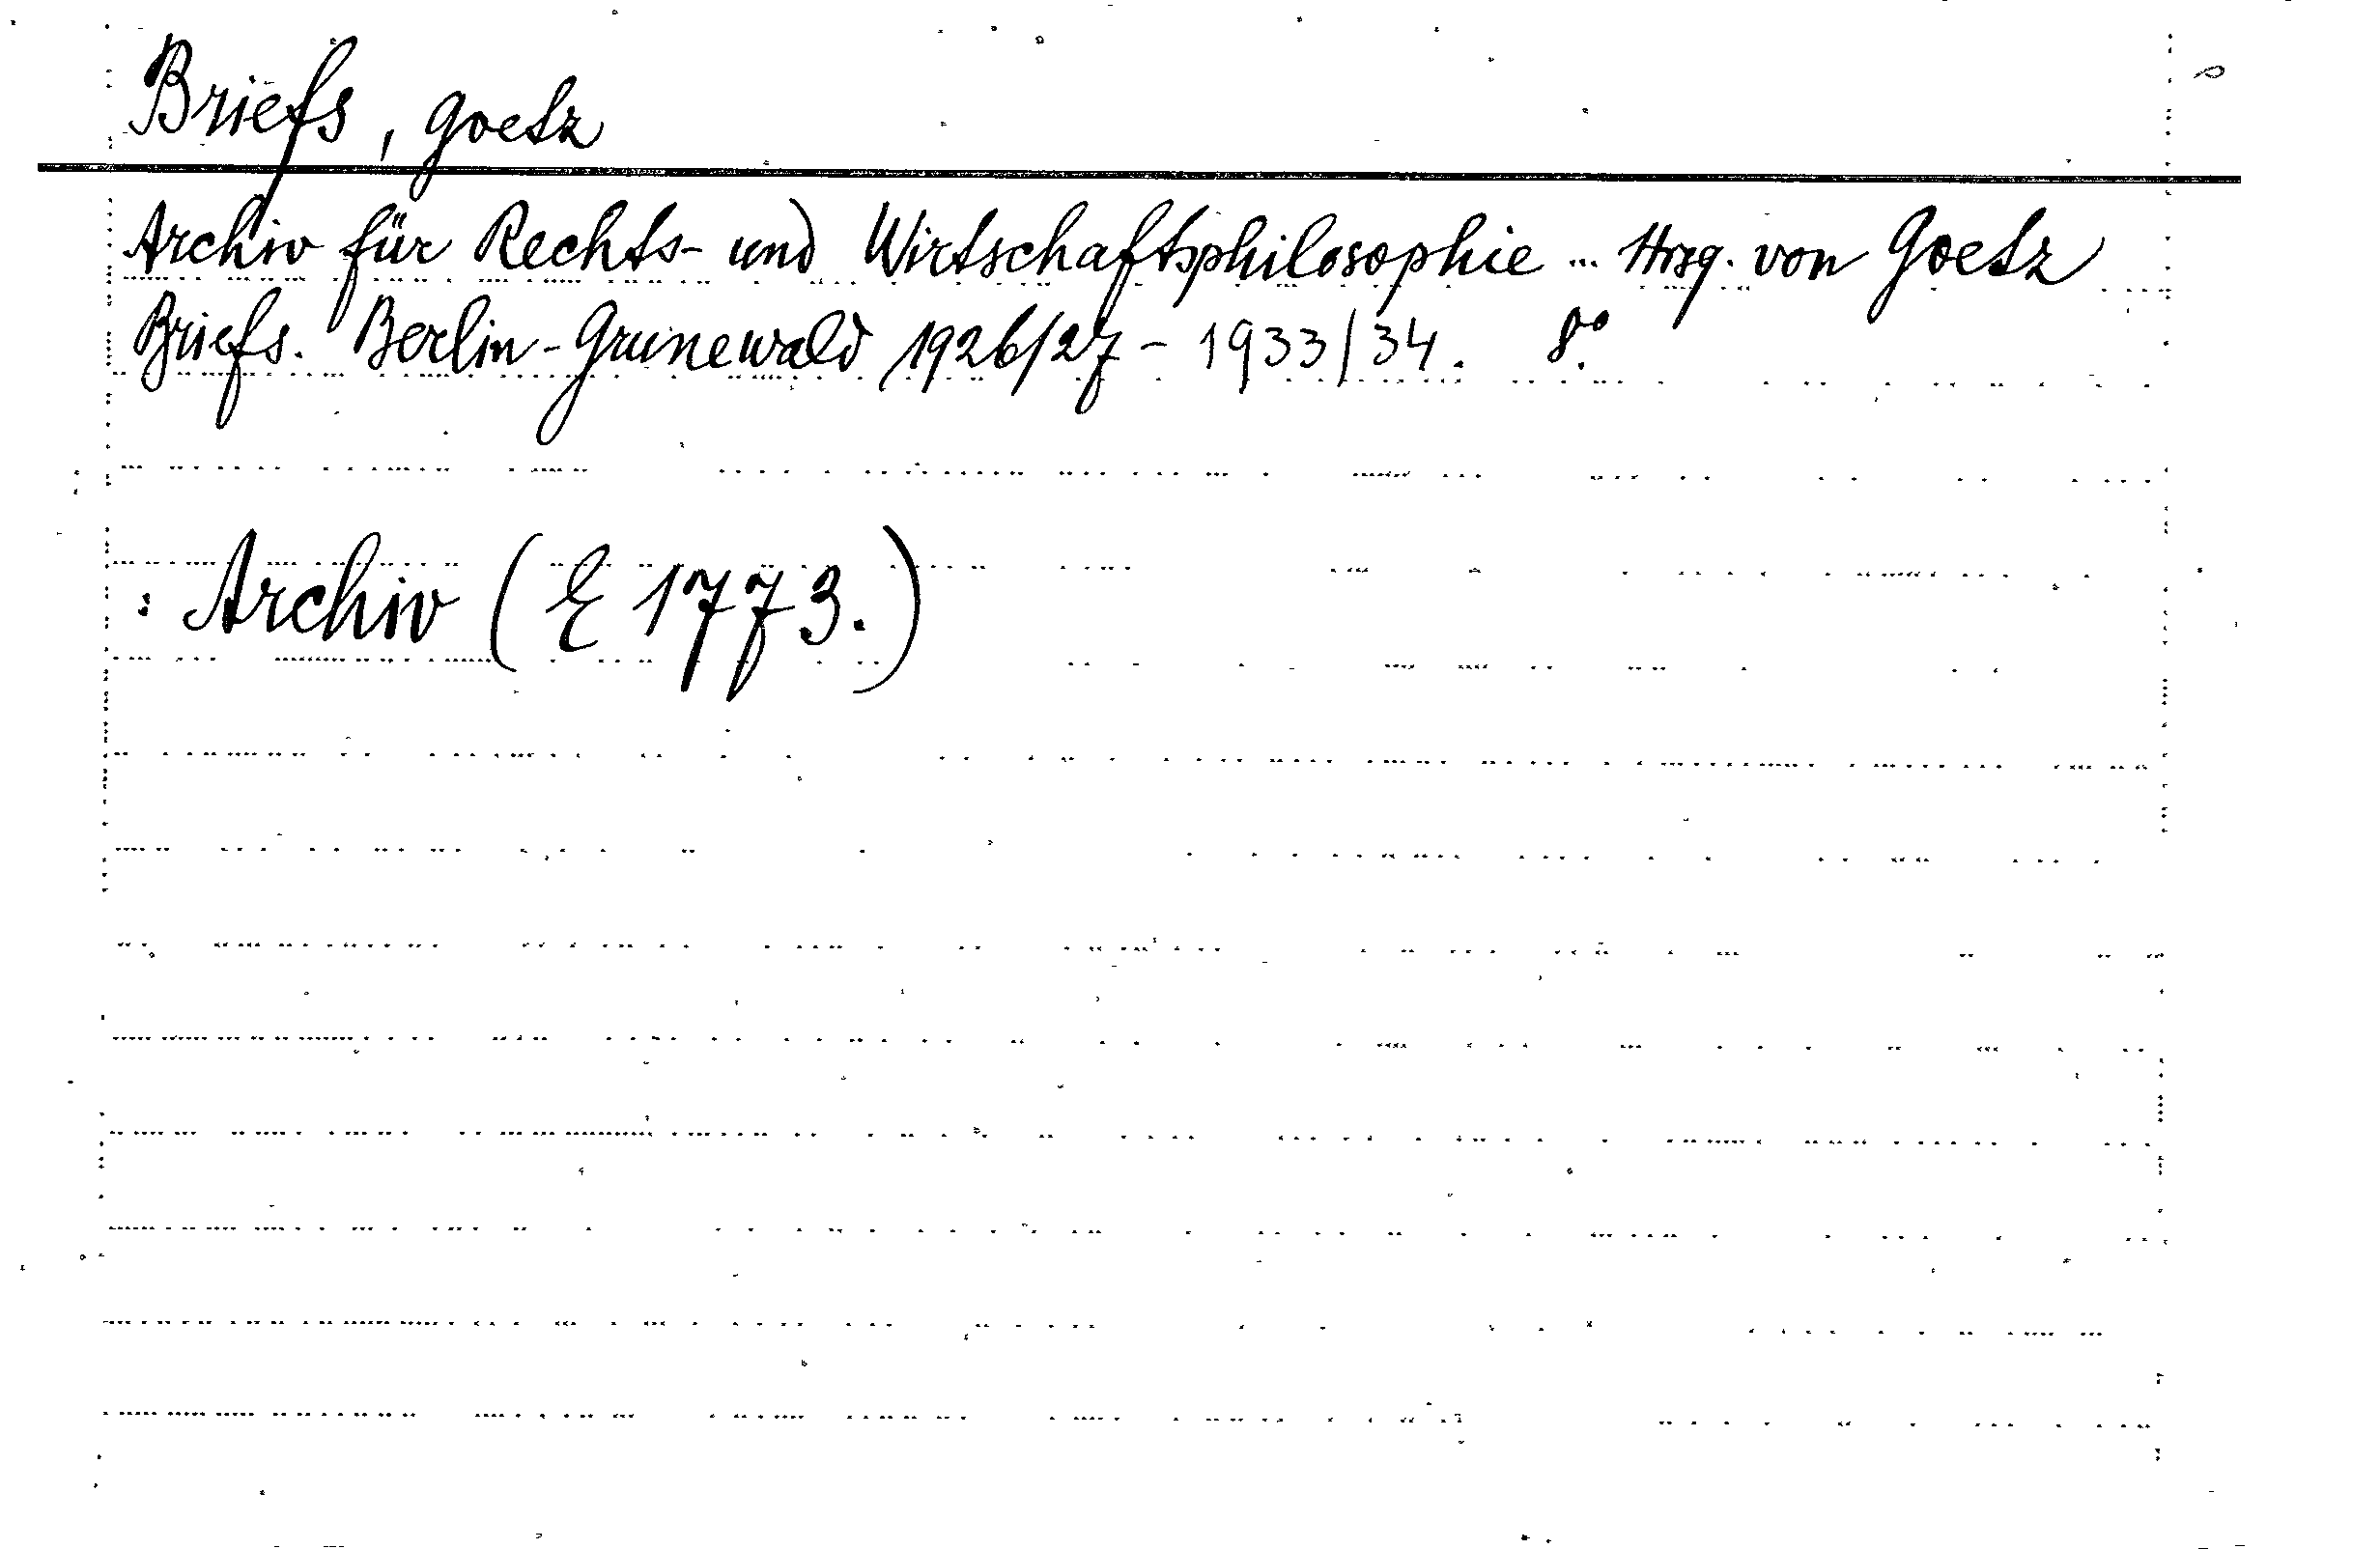 Briefs, Goetz
Archiv für Rechts- und Wirtschaftsphilosophie ... Hrsg. von Goetz
Briefs. Berlin-Grunewald 1926/27 - 1933/34. 8°.
: Archiv (E 1773.)